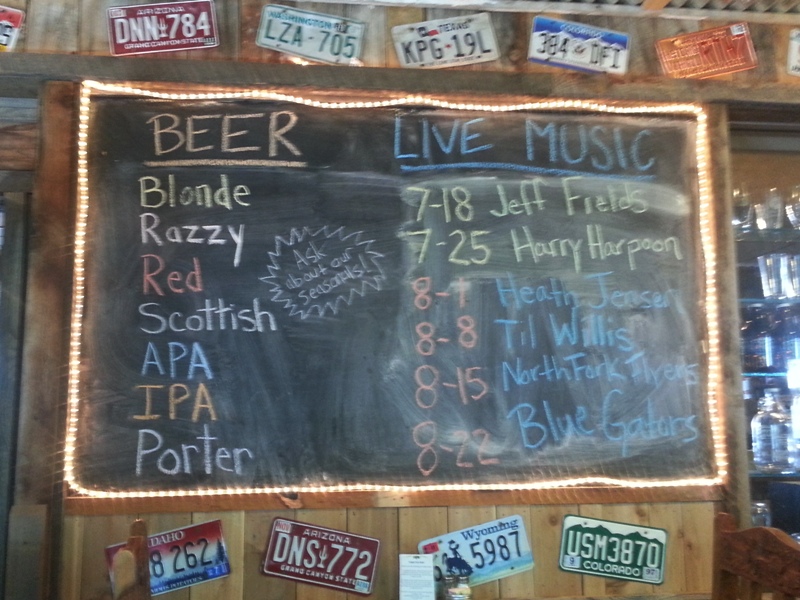 ARIZONA
DNN 784
GRAND CANYON STATE
WASHINGTON
LZA-705
TEXAS
KPG 19L
COLORADO
384 DFI
BEER
Blonde
Razzy
Red
Scottish
APA
IPA
Porter
Ask
about our
seasonals!
LIVE MUSIC
7-18 Jeff Fields
7-25 Harry Harpoon
8-1 Heath Jensen
8-8 Til Willis
8-15 North Fork Flyers
8-22 Blue Gators
IDAHO
8 262
ARIZONA
DNS 772
GRAND CANYON STATE
Wyoming
5987
USM3870
COLORADO